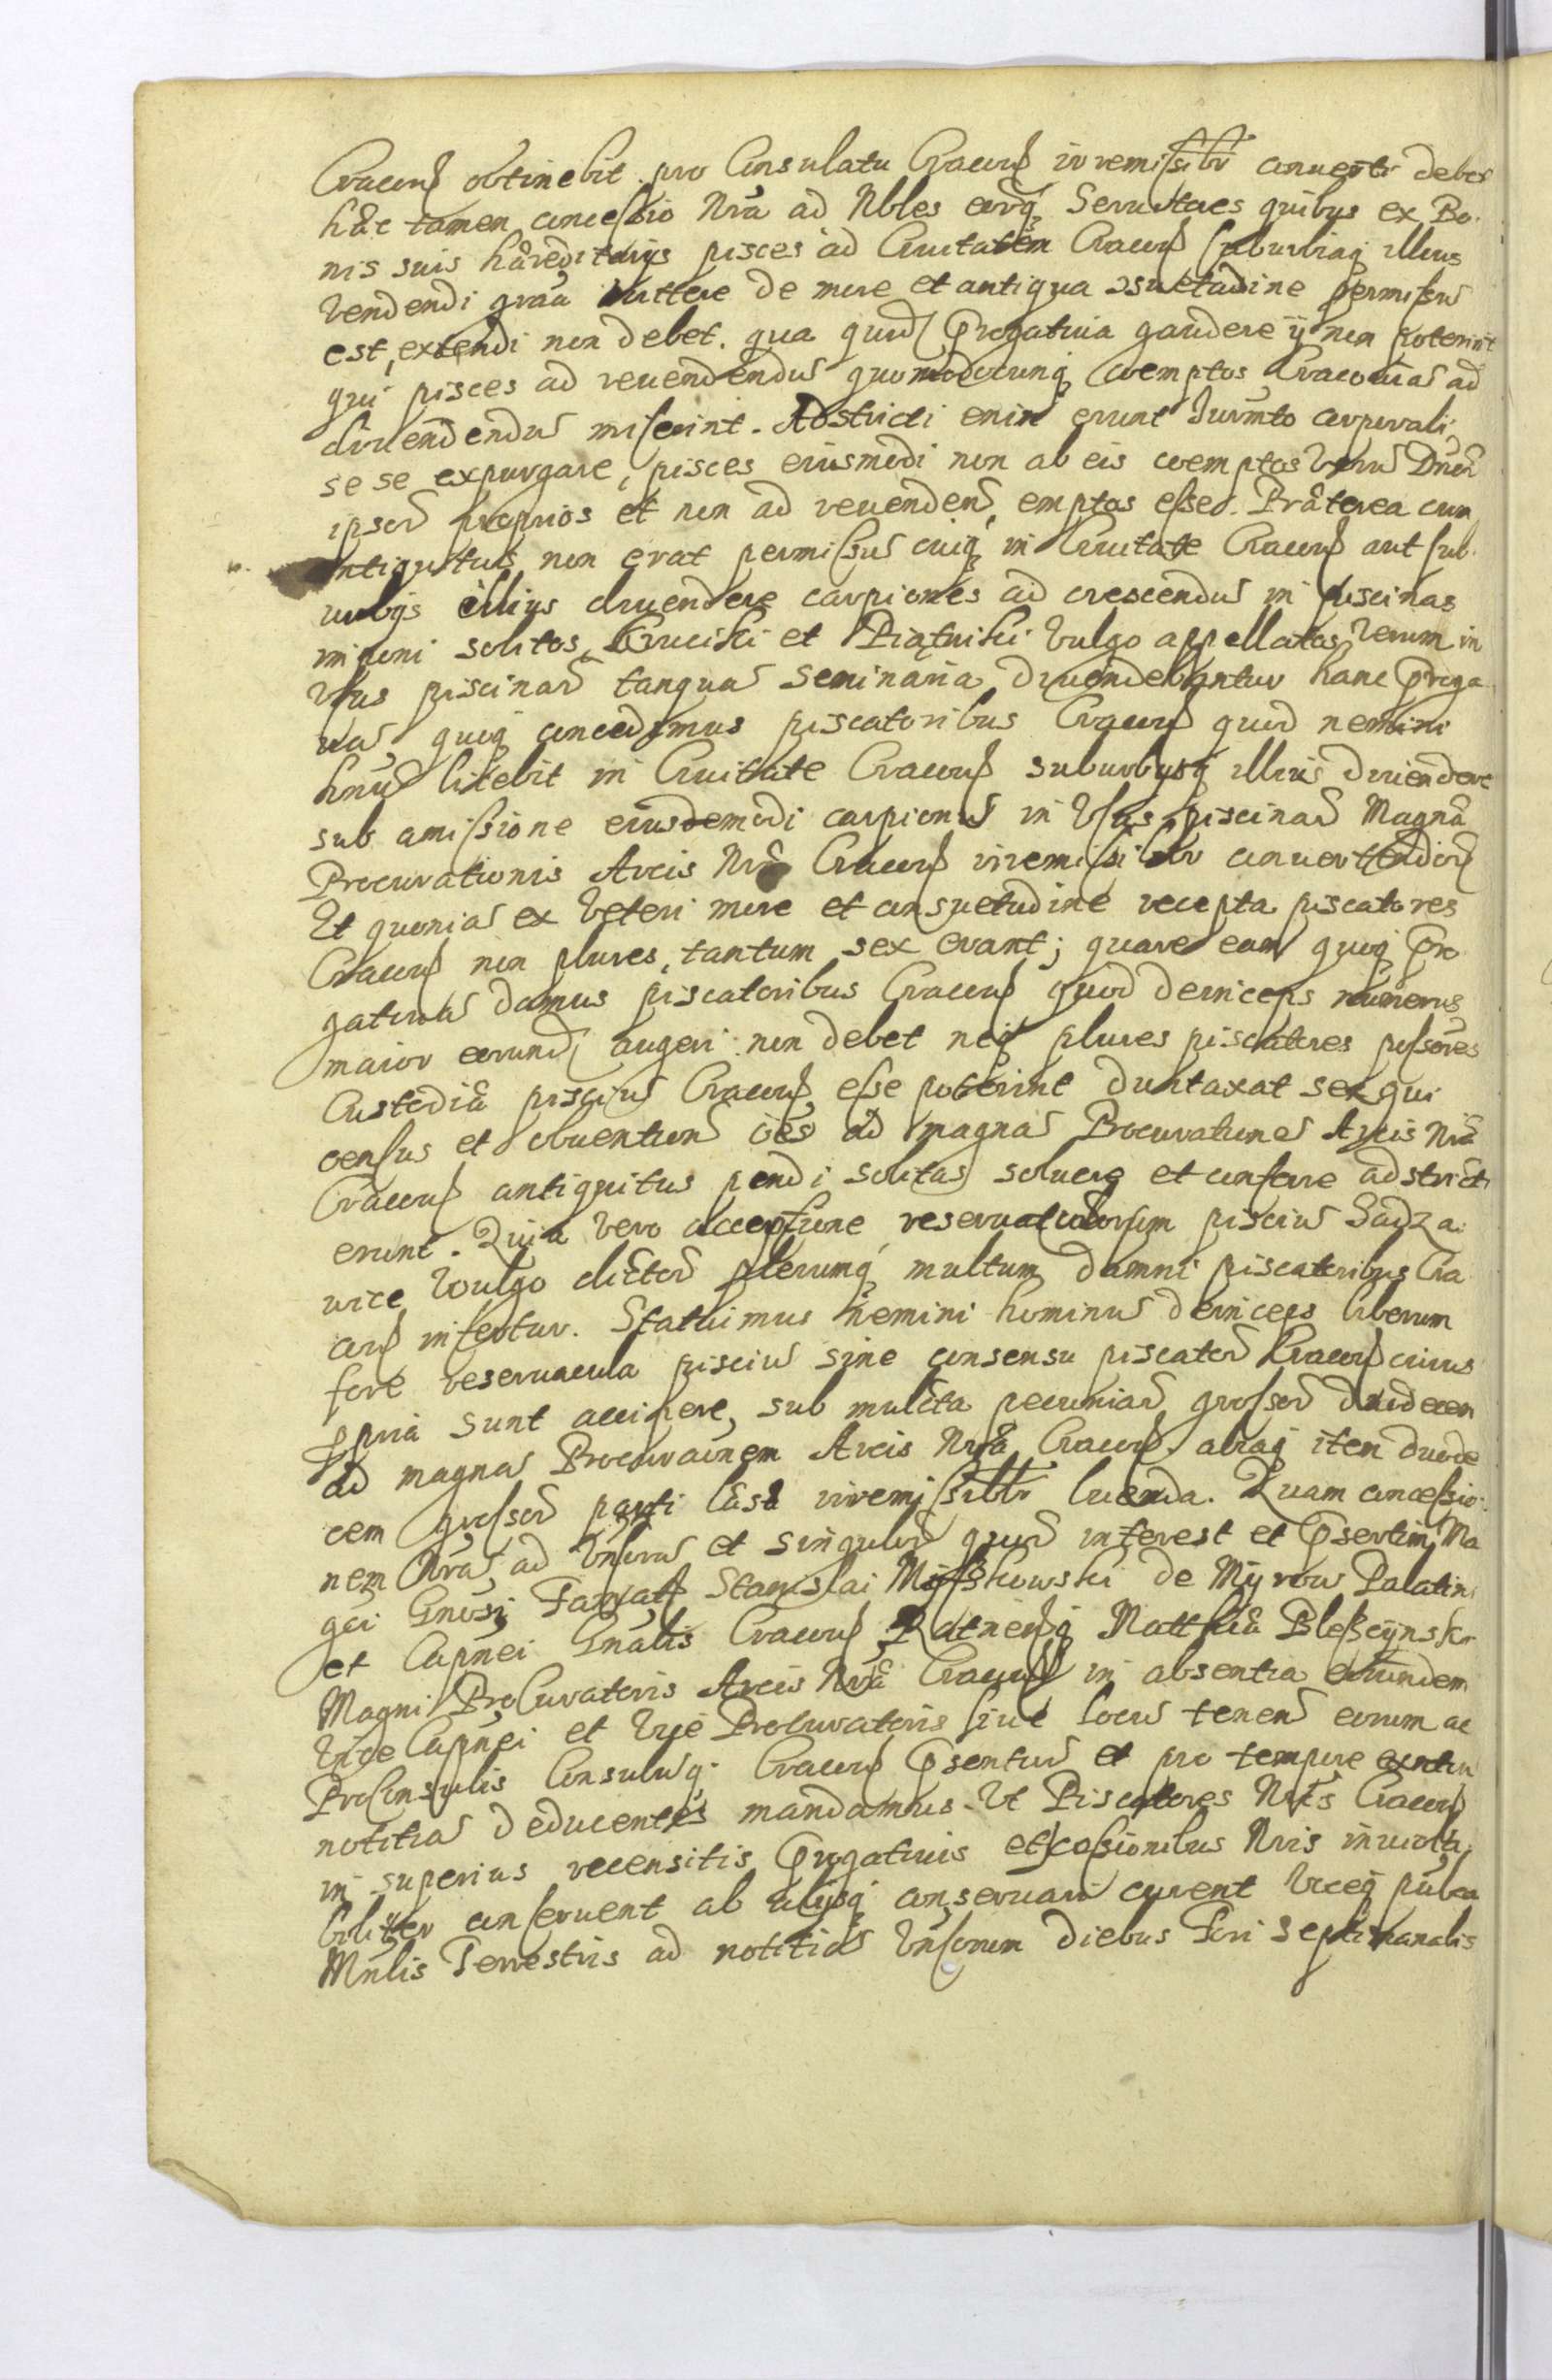 Cracoń obtinebit pro Consulatu Cracoń irremissibr conuerti debet
hæc tamen concessio Nrã ad Nbles eorq Seruitores quibus ex Bo-
nis suis hæreditarijs pisces ad Ciuitatem Cracoń suburbiaq illius
vendendi graã mittere de more et antiqua ɔsuetudine permissũ
est, extendi non debet. qua quid Prrogatiuia gaudere ij non poterint
qui pisces ad reuendendũ quomodocunq coemptos Cracouiã ad
diuendendũ miserint. Adstricti enim erunt Iurmto corporali
se se expurgare, pisces eiusmodi non ab eis coemptos verũ Dnor
ipsor proprios et non ad reuendend emptos esse. Præterea cum
antiquitus non erat permissũ cuiq in Ciuitate Cracoń aut sub-
urbijs illius diuendere carpiones ad crescendũ in piscinas
imponi solitos, Kroczki et Piątniki vulgo appellatos verum in
vsus piscinar tanquã seminaria diuendebantur hanc Prroga-
uã quoq concedimus piscatoribus Cracoń quod nemini
hnũ licebit in Ciuitate Cracoń suburbijsq illius diuendere
sub amissione eiusdemodi carpionũ in vsus piscinar Magnæ
Procurationis Arcis Nræ Cracoń irremissibr conuertendor
Et quoniã ex veteri more et consuetudine recepta piscatores
Cracoń non plures, tantum sex erant; quare eam quoq Prro
gatiuã damus piscatoribus Cracoń quod deinceps numerus
maior eorund augeri non debet neq plures piscatores possores
Custodiæ pisciũ Cracoń esse poterint duntaxat sex qui
census et obuention oẽs ad magnã Procurationẽ Arcis Nræ
Cracoń antiquitus pendi solitas soluere et conferre adstricti
erunt. Quia vero acceptione reseruaculorum pisciũ Sadza
wice vulgo dictor plerumq multum damni piscatoribus Cra
coń infertur. Statuimus nemini hominũ deinceps liberum
fore reseruacula pisciũ sine consensu piscator Cracoń cuius
ppria sunt accipere, sub mulcta pecuniar grossor duodecem
ad magnã Procuraõnem Arcis Nræ Cracoń aliaq item duode
cem grossor parti læsæ irremissibr luenda. Quam concessio-
nem Nrã ad vnsorũ et singulor quor interest et Prsertim Ma
gci Gnosi Stanislai Myszkowski de Myrow Palatin
et Capnei Gnalis Cracoń Ratneńq Matthiæ Pleszcÿnski
Magni Procuratoris Arcis Nræ Cracoń in absentia eorundem
Vice Capnei et Vye Procuratoris siue locũ tenen eorum ac
Proconsulis Consulũq Cracoń Prsentiũ et pro tempore existen
notitiã deducentes mandamus. Vt Piscatores Nros Cracoń
in superius recensitis Prrogatiuis et ɔcessionibus Nris inuiola
biliter conseruent ab alijsq conseruari curent viceq publca
Mnlis Terrestris ad notitiã vnsorum diebus Fori septimanalis